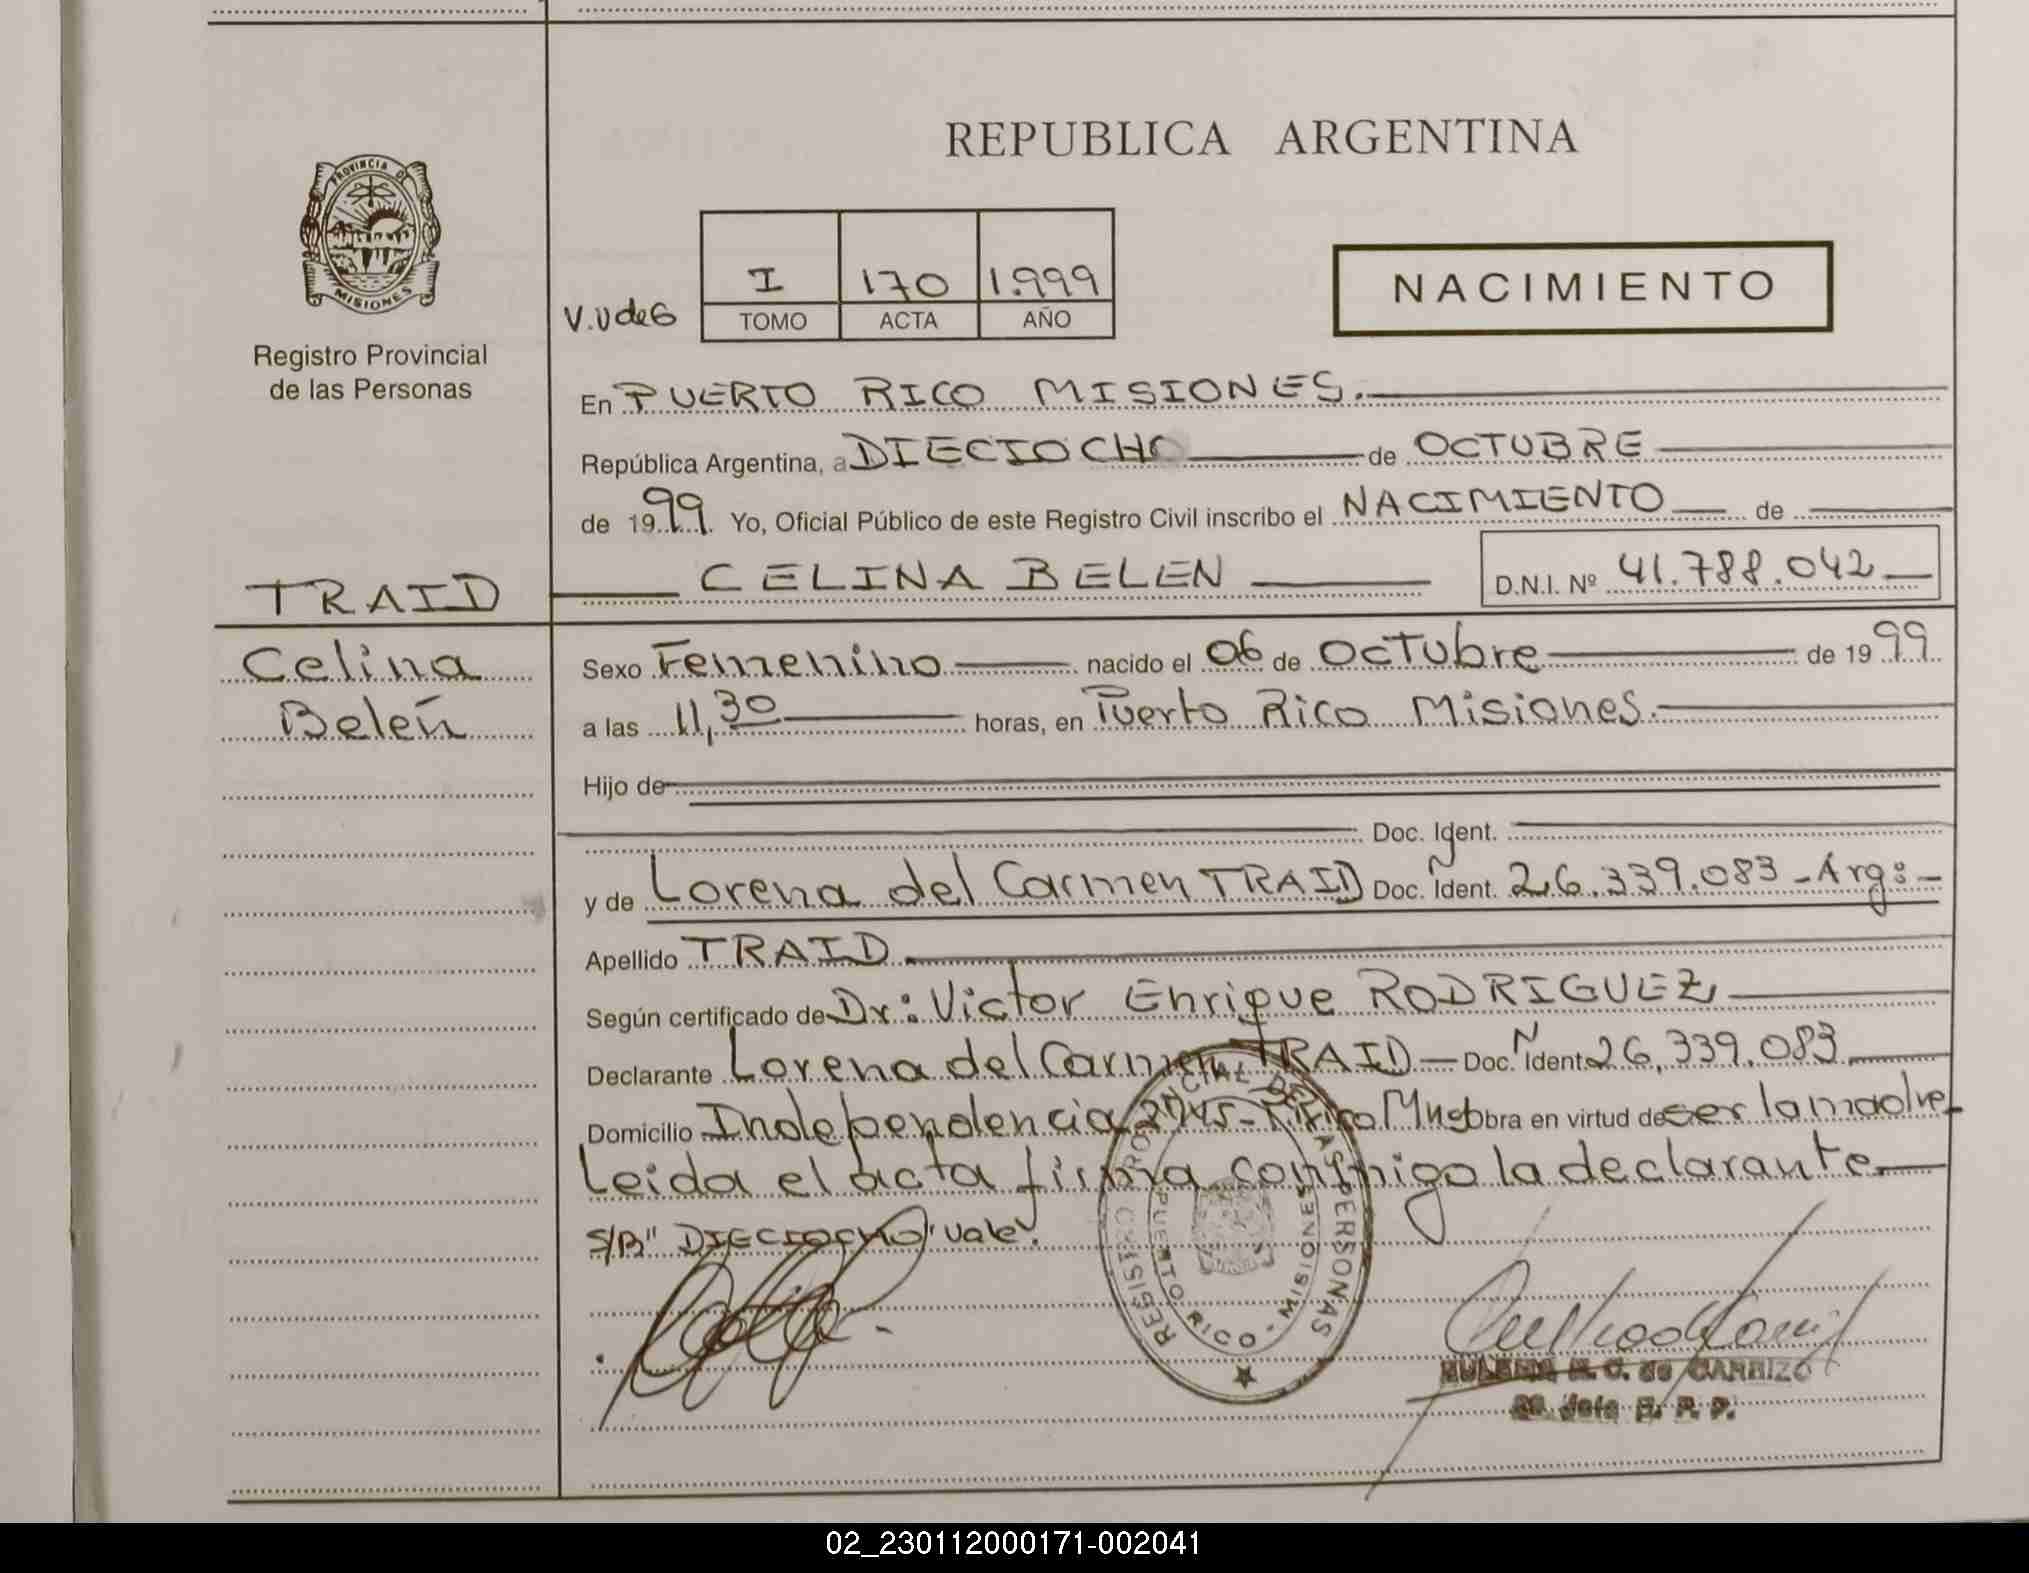 REPUBLICA ARGENTINA
PROVINCIA D
MISIONES
Registro Provincial
de las Personas
V.V de G
I 170 1.999
TOMO ACTA AÑO
NACIMIENTO
En PUERTO RICO MISIONES.
República Argentina, a DIECIOCHO de OCTUBRE
de 1999. Yo, Oficial Público de este Registro Civil inscribo el NACIMIENTO de
TRAID
CELINA BELEN D.N.I. Nº 41.788.042
Celina
Belén
Sexo Femenino nacido el 06 de Octubre de 1999
a las 11,30 horas, en Puerto Rico Misiones.
Hijo de
Doc. Ident.
y de Lorena del Carmen TRAID Doc. Ñ Ident. 26.339.083 - Arg: -
Apellido TRAID
Según certificado de Dr: Victor Enrique RODRIGUEZ
Declarante Lorena del Carmen TRAID Doc. N Ident. 26.339.083
Domicilio Independencia Rico Mns obra en virtud de ser la madre
Leida el acta firma conmigo la declarante
S/B" DIECIOCHO" Vale.
REGISTRO PROVINCIAL DE LAS PERSONAS
PUERTO RICO - MISIONES
M. C. de CARRIZO
Jefe R. P. P.
02_230112000171-002041